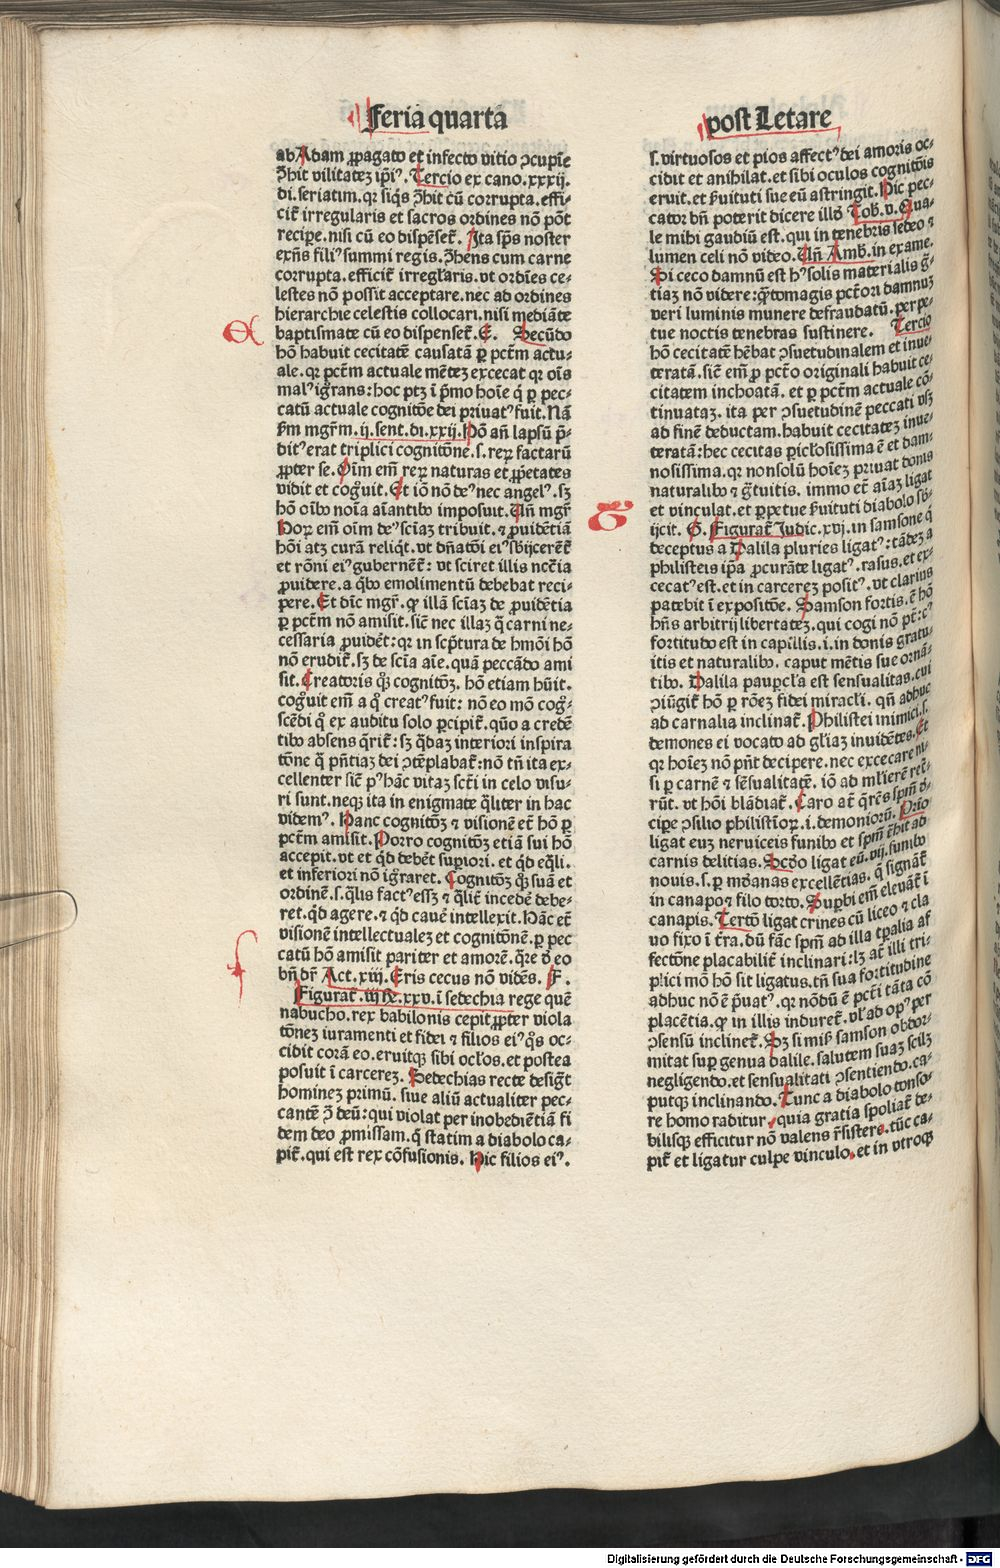 Feria quarta
ab Adam ꝓpagato et infecto vitio ꝯcupīe
ꝯ̄hit vilitatez ip̄iꝰ. Tercio ex cano. xxxij.
di. seriatim. qꝛ siq̄s ꝯ̄hit cū corrupta. effi⸗
cit̄ irregularis et sacros ordines nō pōt
recipe. nisi cū eo dispēset̄. Ita sp̄s noster
exn̄s filiꝰ summi regis. ꝯ̄hens cum carne
corrupta. efficit̄ irregl̄aris. vt ordīes ce⸗
lestes nō possit acceptare. nec ad ordines
hierarchie celestis collocari. nisi mediāte
baptismate cū eo dispenset̄. E. Secūdo
hō habuit cecitatē causatā ꝑ pctm̄ actu⸗
ale. qꝛ pctm̄ actuale mētez excecat qꝛ oīs
malꝰ igr̄ans: hoc ptz ī pͥmo hoīe q̄ ꝑ pec⸗
catū actuale cognitōe dei priuatꝰ fuit. Nā
ẜm mgr̄m. ij. sent. di. xxij. Hō an̄ lapsū p̄⸗
ditꝰ erat triplici cognitōne. s. reꝝ factarū
ꝓpter se. Oīm em̄ reꝝ naturas et ꝓp̄etates
vidit et cogͦuit. Et iō nō deꝰ nec angelꝰ. sꝫ
hō oībꝰ noīa aīantibꝰ imposuit. Un̄ mgr̄
Hoꝝ em̄ oīm deꝰ sciaz tribuit. ⁊ ꝓuidētiā
hōi atꝫ curā reliq̄t. vt dn̄atōi eiꝰ sb̄ijcerēt̄
et rōni eiꝰ gubernēt̄: vt sciret illis nc̄cīa
ꝓuidere. a qͥbꝰ emolimentū debebat reci⸗
pere. Et dīc mgr̄. ꝙ illā sciaz de ꝓuidētia
ꝑ pctm̄ nō amisit. sic̄ nec illaz q̄ carni ne⸗
cessaria ꝓuidēt: qꝛ in scp̄tura de hmōi hō
nō erudit̄. sꝫ de scīa aīe. quā peccādo ami
sit. Creatoris qͦꝫ cognitōꝫ. hō etiam hūit.
cogͦuit em̄ a qͦ creatꝰ fuit: nō eo mō cogͦ⸗
scēdi q̄ ex auditu solo ꝑcipit̄. qūo a credē
tibꝰ absens q̄rit̄: sꝫ qͣdaz interiori inspira
tōne q̄ pn̄tiaz dei ꝯtēplabat̄: nō tn̄ ita ex⸗
cellenter sic̄ pꝰ hāc vitaz sctī in celo visu⸗
ri sunt. neqꝫ ita in enigmate qͣliter in hac
videmꝰ. Hanc cognitōꝫ ⁊ visionē et̄ hō ꝑ
pctm̄ amisit. Porro cognitōꝫ etiā sui hō
accepit. vt et qͥd debēt supiori. et qͥd eqͣli.
et inferiori nō igr̄aret. Cognitōꝫ qͦꝫ suā et
ordinē. s. qͣlis factꝰ essꝫ ⁊ qͣlit̄ incedē debe⸗
ret. qͥd agere. ⁊ qͥd cauē intellexit. Hāc et̄
visionē intellectualez et cognitōnē. ꝑ pec
catū hō amisit pariter et amorē. qͣre d̄ eo
bn̄ dr̄ Act. xiij. Eris cecus nō vidēs. F.
Figurat̄. iiij Re. xxv. ī sedechia rege quē
nabucho. rex babilonis cepit ꝓpter viola
tōnez iuramenti et fidei ⁊ filios eiꝰ qͦs oc⸗
cidit corā eo. eruitqꝫ sibi ocl̄os. et postea
posuit ī carcerez. Sedechias recte desigͣt
hominez primū. siue aliū actualiter pec⸗
cantē ꝯ̄ deū: qui violat per inobediētiā fi
dem deo ꝓmissam. q̄ statim a diabolo ca⸗
pit̄. qui est rex cōfusionis. Hic filios eiꝰ.
post Letare
s. virtuosos et pios affectꝰ dei amoris oc⸗
cidit et anihilat. et sibi oculos cognitōis
eruit. et ẜuituti sue eū astringit. Hic pec⸗
cator bn̄ poterit dicere illꝰ Tob. v. Qua⸗
le mihi gaudiū est. qui in tenebris sedeo ⁊
lumen celi nō video. Un̄ Amb. in exame.
Si ceco damnū est hꝰ solis materialis gr̄⸗
tiaz nō videre: qͣtomagis pctōri damnuꝫ
veri luminis munere defraudatū. perpe⸗
tue noctis tenebras sustinere. Tercio
hō cecitatē hēbat ꝯsuetudinalem et inue⸗
teratā. sic̄ em̄ ꝓ pctō originali habuit ce⸗
citatem inchoatā. et ꝑ pctm̄ actuale cō⸗
tinuataꝫ. ita per ꝯsuetudinē peccati vsꝫ
ad finē deductam. habuit cecitateꝫ inue⸗
teratā: hec cecitas ꝑicl̄osissima ē et dam⸗
nosissima. qꝛ nonsolū hoīez priuat donis
naturalibꝰ ⁊ gr̄tuitis. immo et̄ aīaz ligat
et vinculat. et ꝑpetue ẜuituti diabolo sb̄⸗
ijcit. G. Figurat̄ Judic. xvj. in samsone q̄
deceptus a Dalila pluries ligatꝰ: tādeꝫ a
philisteis ip̄a ꝓcurāte ligatꝰ. rasus. et ex⸗
cecatꝰ est. et in carcerez positꝰ. vt clarius
patebit ī expositōe. Samson fortis. ē hō
hn̄s arbitrij libertateꝫ. qui cogi nō pōt: cꝰ
fortitudo est in capillis. i. in donis gratu⸗
itis et naturalibꝰ. caput mētis sue ornā⸗
tibꝰ. Dalila paupcl̄a est sensualitas. cui
ꝯiūgit̄ hō ꝑ rōez fidei miracl̄i. qn̄ adhuc
ad carnalia inclinat̄. Philistei inimici. s.
demones ei vocato ad gl̄iaz inuidētes. Et
qꝛ hoīez nō pn̄t decipere. nec excecare ni⸗
si ꝑ carnē ⁊ sēsualitatē. iō ad ml̄ierē ret̄⸗
rūt. vt hōi blādiat̄. Caro at̄ q̄rēs spm̄ d̄⸗
cipe ꝯsilio philistioꝝ. i. demonioꝝ. Prio
ligat euz neruiceis funibꝰ et spm̄ ꝯ̄hit ad
carnis delitias. Scd̄o ligat eū. vij. funibꝰ
nouis. s. ꝑ mūdanas excellētias. q̄ signāt̄
in canapo ⁊ filo torto. Supbi em̄ eleuāt̄ ī
canapis. Tertō ligat crines cū liceo ⁊ cla
uo fixo ī tr̄a. dū fāc spm̄ ad illa tpalia af
fectōne placabilit̄ inclinari: lꝫ at̄ illi tri⸗
plici mō hō sit ligatus. tn̄ sua fortitudine
adhuc nō ē pͥuatꝰ. qꝛ nōdū ē pctī tāta cō
placētia. ꝙ in illis induret̄. vl̓ ad opꝰ per
ꝯsensū inclinet̄. Sꝫ si misꝫ samson obdoꝛ⸗
mitat sup genua dalile. salutem suaz scilꝫ
negligendo. et sensualitati ꝯsentiendo. ca⸗
putqꝫ inclinando. Tunc a diabolo tonso⸗
re homo raditur, quia gratia spoliat̄ de⸗
bilisqꝫ efficitur nō valens r̄sistere. tūc ca⸗
pit̄ et ligatur culpe vinculo. et in vtroqꝫ
Digitalisierung gefördert durch die Deutsche Forschungsgemeinschaft - DFG